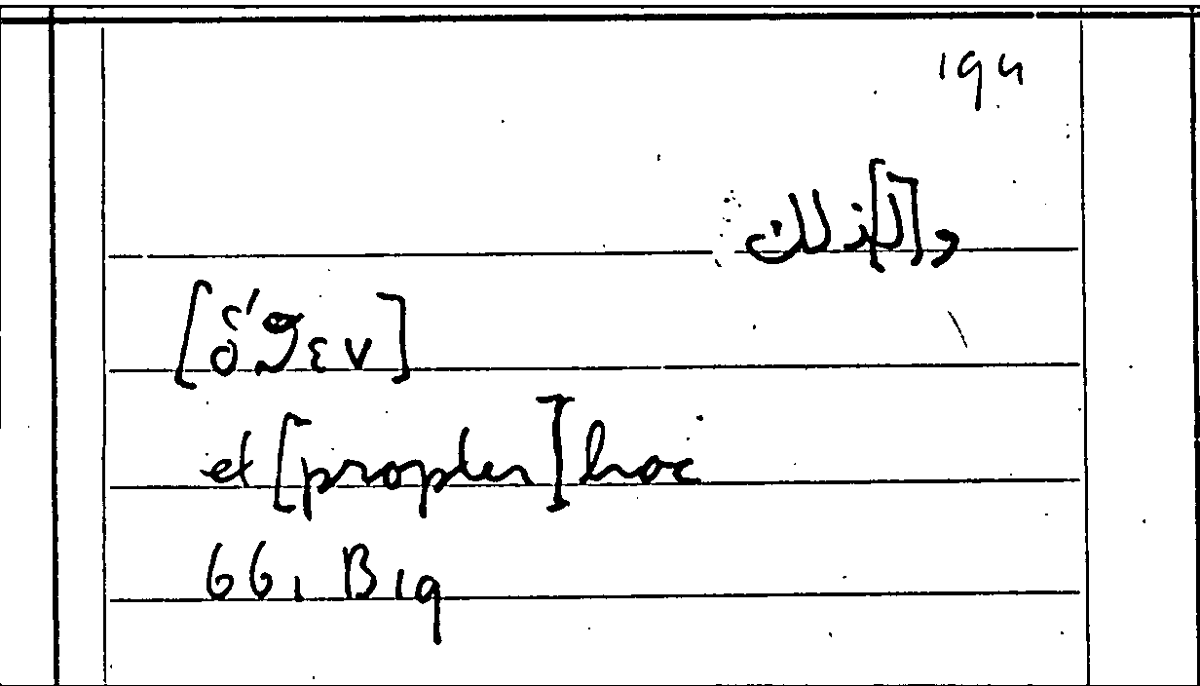 194
و[ل]ذلك
[ὅθεν]
et [propter] hoc
661 B19